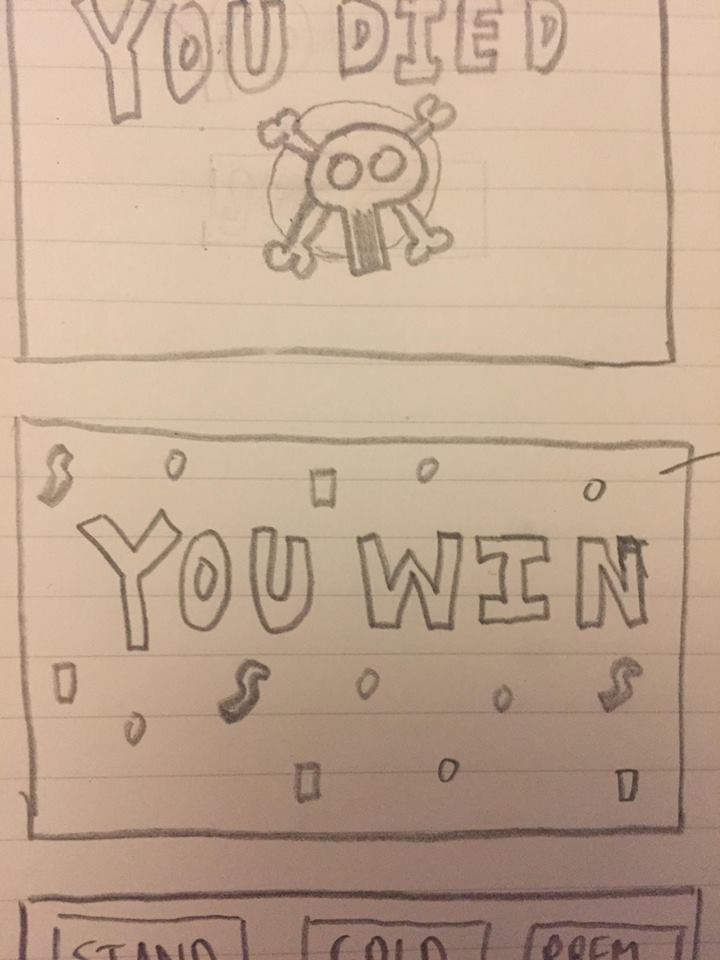 YOU DIED
YOU WIN
STAND GOLD PREM